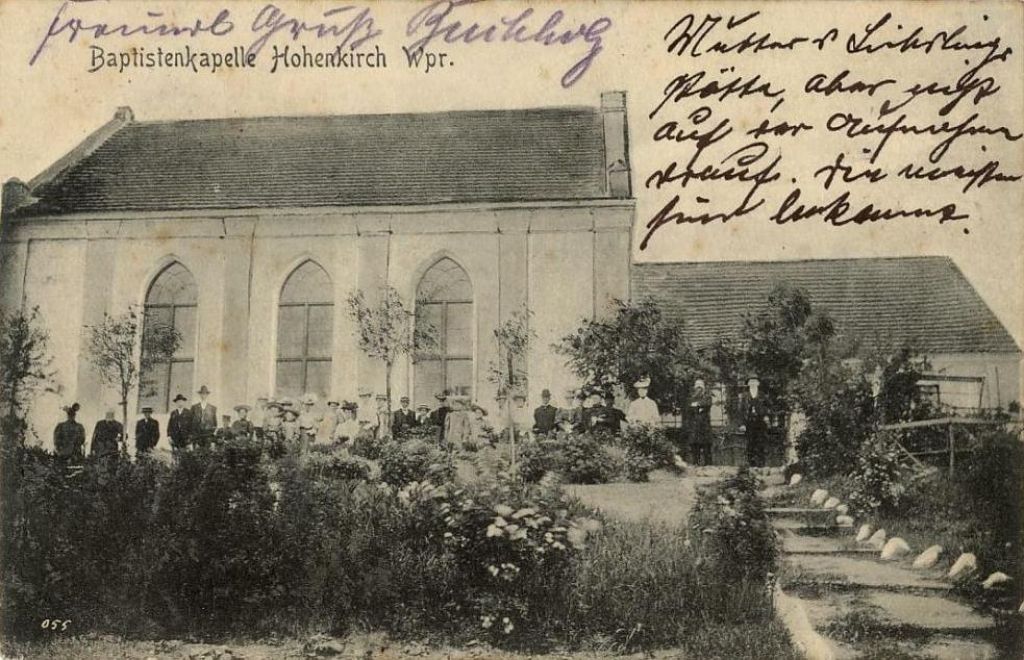 freundl Gruß Buchholz
Baptistenkapelle Hohenkirch Wpr.
Mutter u
aber nicht
auf der Aufnahme
drauf. Die meisten
sind bekannt.
055